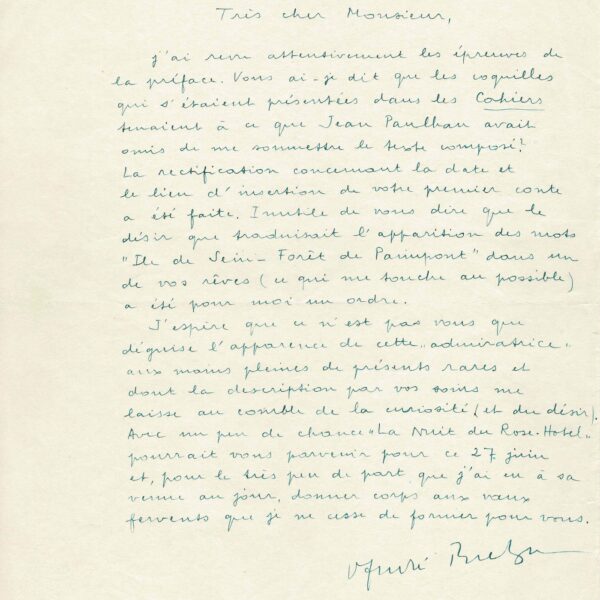 Très cher Monsieur,
j'ai revu attentivement les épreuves de
la préface. Vous ai-je dit que les coquilles
qui s'étaient présentées dans les Cahiers
tenaient à ce que Jean Paulhan avait
omis de me soumettre le texte composé?
La rectification concernant la date et
le lieu d'insertion de votre premier conte
a été faite. Inutile de vous dire que le
désir que traduisait l'apparition des mots
"Ile de Sein-Forêt de Paimpont" dans un
de vos rêves (ce qui me touche au possible)
a été pour moi un ordre.
J'espère que ce n'est pas vous que
déguise l'apparence de cette "admiratrice"
aux mains pleines de présents rares et
dont la description par vos soins me
laisse au comble de la curiosité (et du désir).
Avec un peu de chance "La Nuit du Rose-Hotel"
pourrait vous parvenir pour ce 27 juin
et, pour le très peu de part que j'ai eu à sa
venue au jour, donner corps aux vœux
fervents que je ne cesse de former pour vous.
André Breton